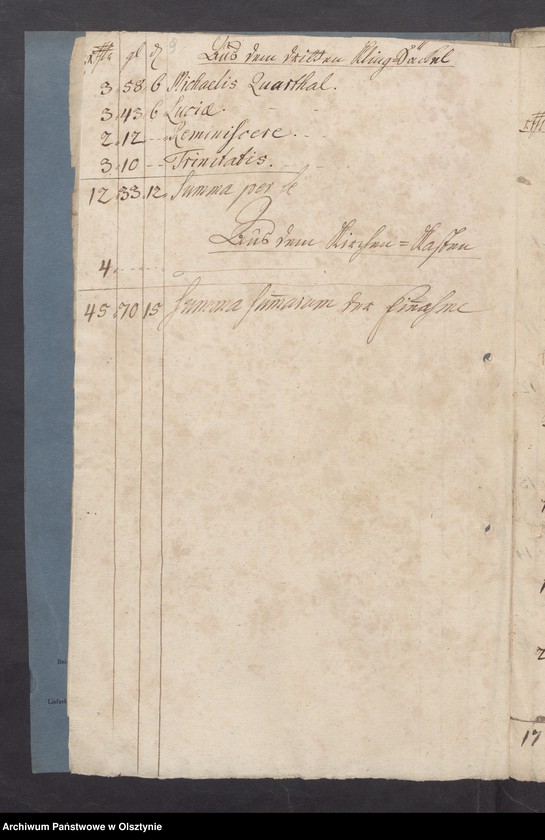 Rthr gl ₰ 9 Aus dem dritten Kling Säckel
3 58 6 Michaelis Quarthal.
3 43 6 Luciæ.
2 12 -- Reminiscere.
3 10 -- Trinitatis.
12 33 12 Summa per se
Aus dem Kirchen=Kasten
4
45 70 15 Summa Sum̄arum der Ein̄ahme
17
Archiwum Państwowe w Olsztynie